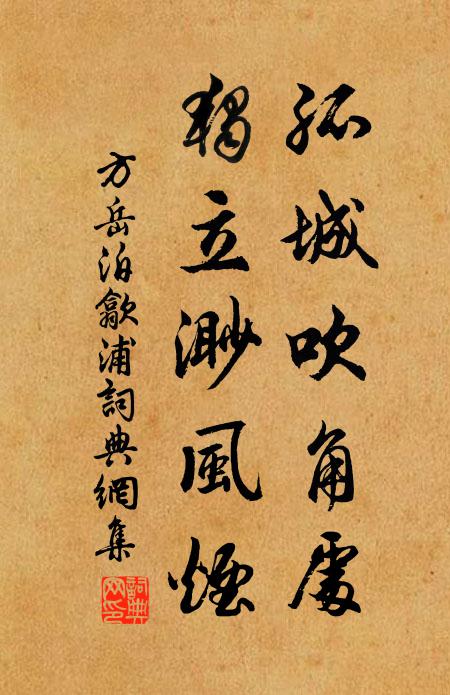 孤城吹角處
獨立渺風煙
方岳泊歙浦詞典網集
詞典網印